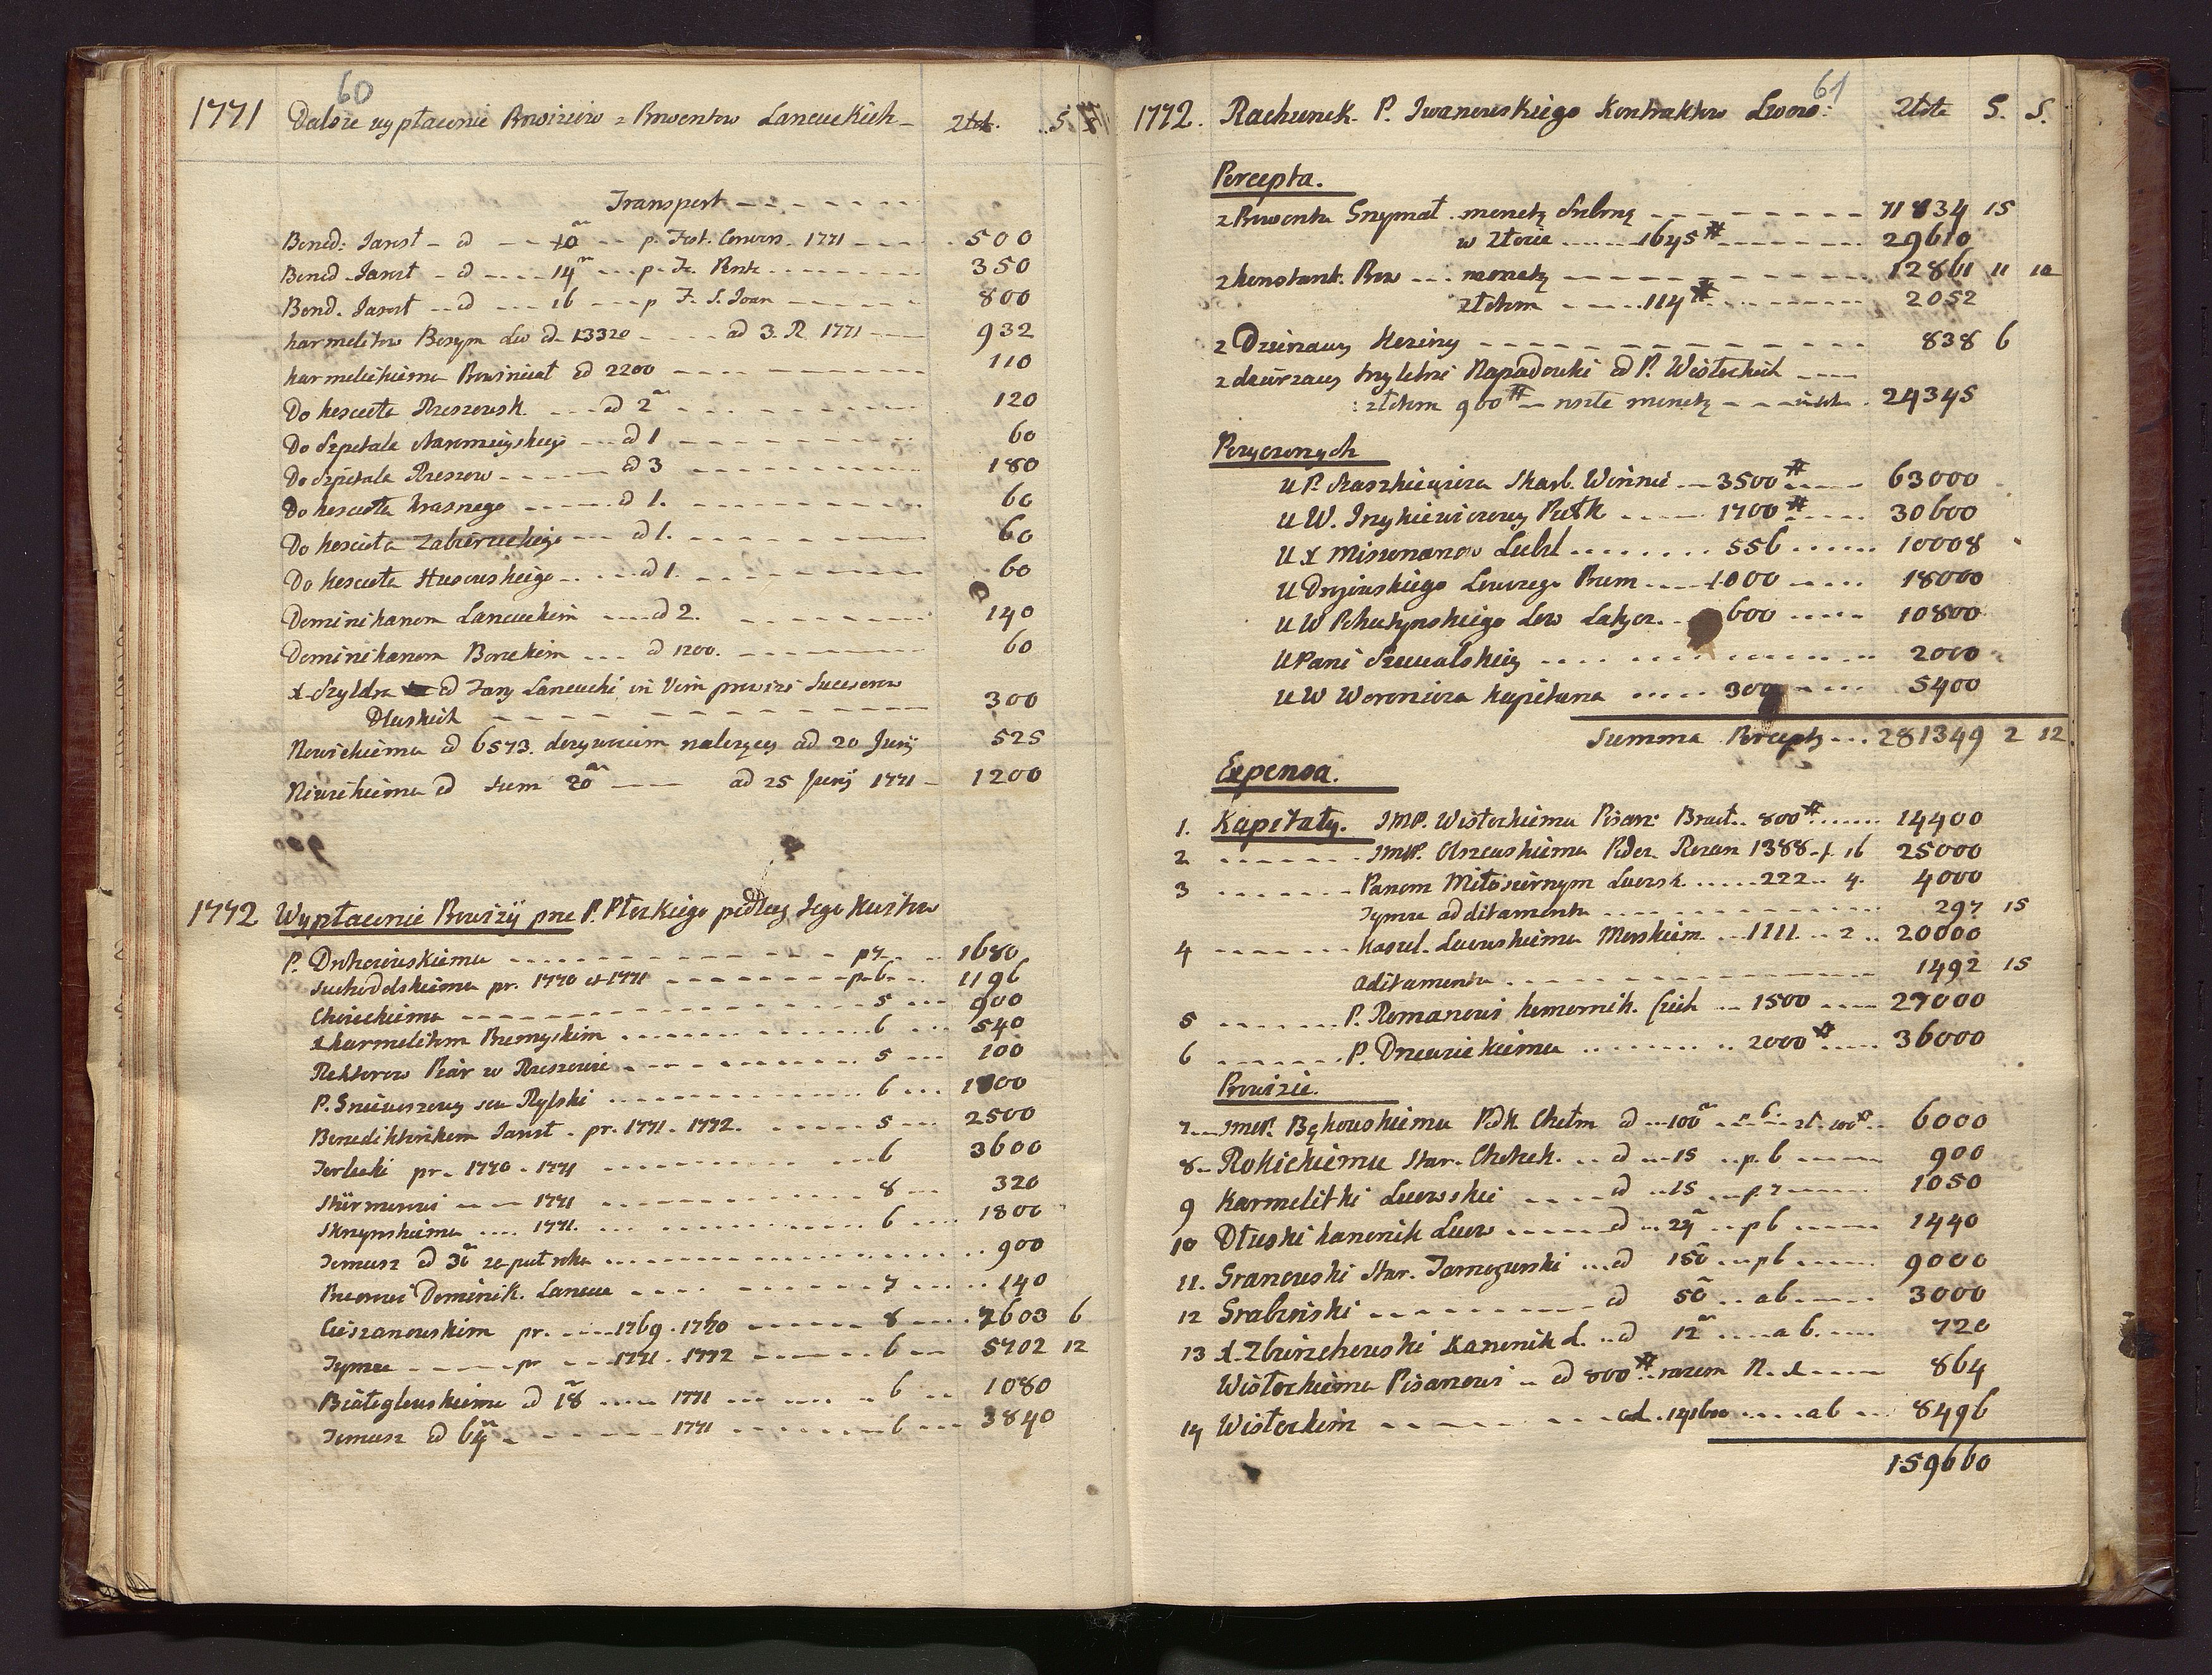 60
1771 Dalsze wypłacenie Prowiziiow z Prowentow Lancuckich Złot. S.
Transport
Bened: Jarosł - od 10 m p. Fest. Convers. 1771 500
Bened. Jarosł - od 14 m p. Fe. Pente 350
Bend. Jarosł - od 16 p F. S. Joan 800
karmelitow Bosym Lw od 13320 ad 3. R 1771 932
karmelickiemu Prowincial od 2200 110
Do koscioła Rzeszowsk. od 2 m 120
Do Szpitala od 1 60
Do szpitala Rzeszow od 3 180
Do koscioła krasnego d 1. 60
Do koscioła Zabierzeckiego od 1. 60
Do koscioła Husowskiego od 1. 60
Dominikanom Lancuckim od 2. 140
Dominikanom Boreckim od 1200. 60
X. Szyldra od Fary Lancucki in Vim prowizi Sucesorow
Dłuskich 300
Nowickiemu od 6573. dozywociem nalezący ad 20 Junij 525
Niwickiemu od sum 20 m ad 25 Junij 1771 1200
1772 Wypłacenie Prowizij pne P. Płockiego podług Jego kwitow
P. Drohoiewskiemu p 7 1680
Suchodolskiemu pr. 1770 et 1771 p. 6 1196
Choieckiemu 5 900
X karmelitom Przemyskim 6 540
Rektorow Piar w Rzeszowie 5 100
P. Gniewoszowy seu Rylski 6 1800
Benediktinkom Jarosł. pr. 1771. 1772. 5 2500
Terlecki pr. 1770. 1771 6 3600
Stürmerowi 1771 8 320
Skrzynskiemu 1771. 6 1800
Temusz od 30 m za puł roku 900
Przeorowi Dominik. Lancuc 7 140
Cieszanowskim pr. 1769. 1770 8 2603 6
Tymze pr 1771. 1772 6 5702 12
Białogłowskiemu od 18 m 1771 6 1080
Temusz od 64 m 1771 6 3840
61
1772. Rachunek P. Iwanowskiego kontraktow Lwow: Złote S. S.
Percepta.
z Prowentu Grzymał. monetą srebrną 71834 15
w złocie 1645 # 29610
z konstant. Prow monetą 12861 11 12
złotem 114 # 2052
z Dzierzawy Koziny 838 6
z dzierzawy trzyletni Napadowki od P. Wisłockich
złotem 960 # reszte monetą 24345
Pozyczonych
U P. Staszkiewicza Skarb. Winnic 3500 # 63000
U W. Pułk 1700 # 30600
U X Missionarzow Lubel 556 10008
U Drojewskiego Lowczego Przem 1000 18000
U W Pohutynskiego Low Latycz. 600 10800
U Pani Szuwalskiy 2000
U W Woronicza kapitana 300 5400
Summa Percepty 281349 2 12
Expensa.
1. Kapitały. JMP. Wisłockiemu Pisarz: Bracł. 800 # 14400
2 JMP. Orzewskiemu Podcz. Rozan 1388 f. 16 25000
3 Panom Miłosiernym Lwowsk. 222 4 4000
Tymze additamentu 297 15
4 Kasztel. Lwowskiemu Morskiem 1111 2 20000
aditamentu 1492 15
5 P. Romanowi komornik. 1500 27000
6 P. Drzewickiemu 2000 # 36000
Prowizie.
7. JMP. Bękowskiemu Podk Chełm od 100 m p. 6. 6000
8 Rokickiemu Star. od 15 p. 6 900
9 Karmelitki Lwowskie od 15 p. 7 1050
10 Dłuski kanonik Lwow od 24 m p 6 1440
11. Granowski Star. Tarnogurski od 150 m p 6 9000
12 Grabinski od 50 m a 6 3000
13 X. Zboruchowski Kanonik L. od 12 m a 6. 720
Wisłockiemu Pisarzowi od 800 # razem N. 1. 864
14 Wisłockim od 141600 a 6 8496
159660